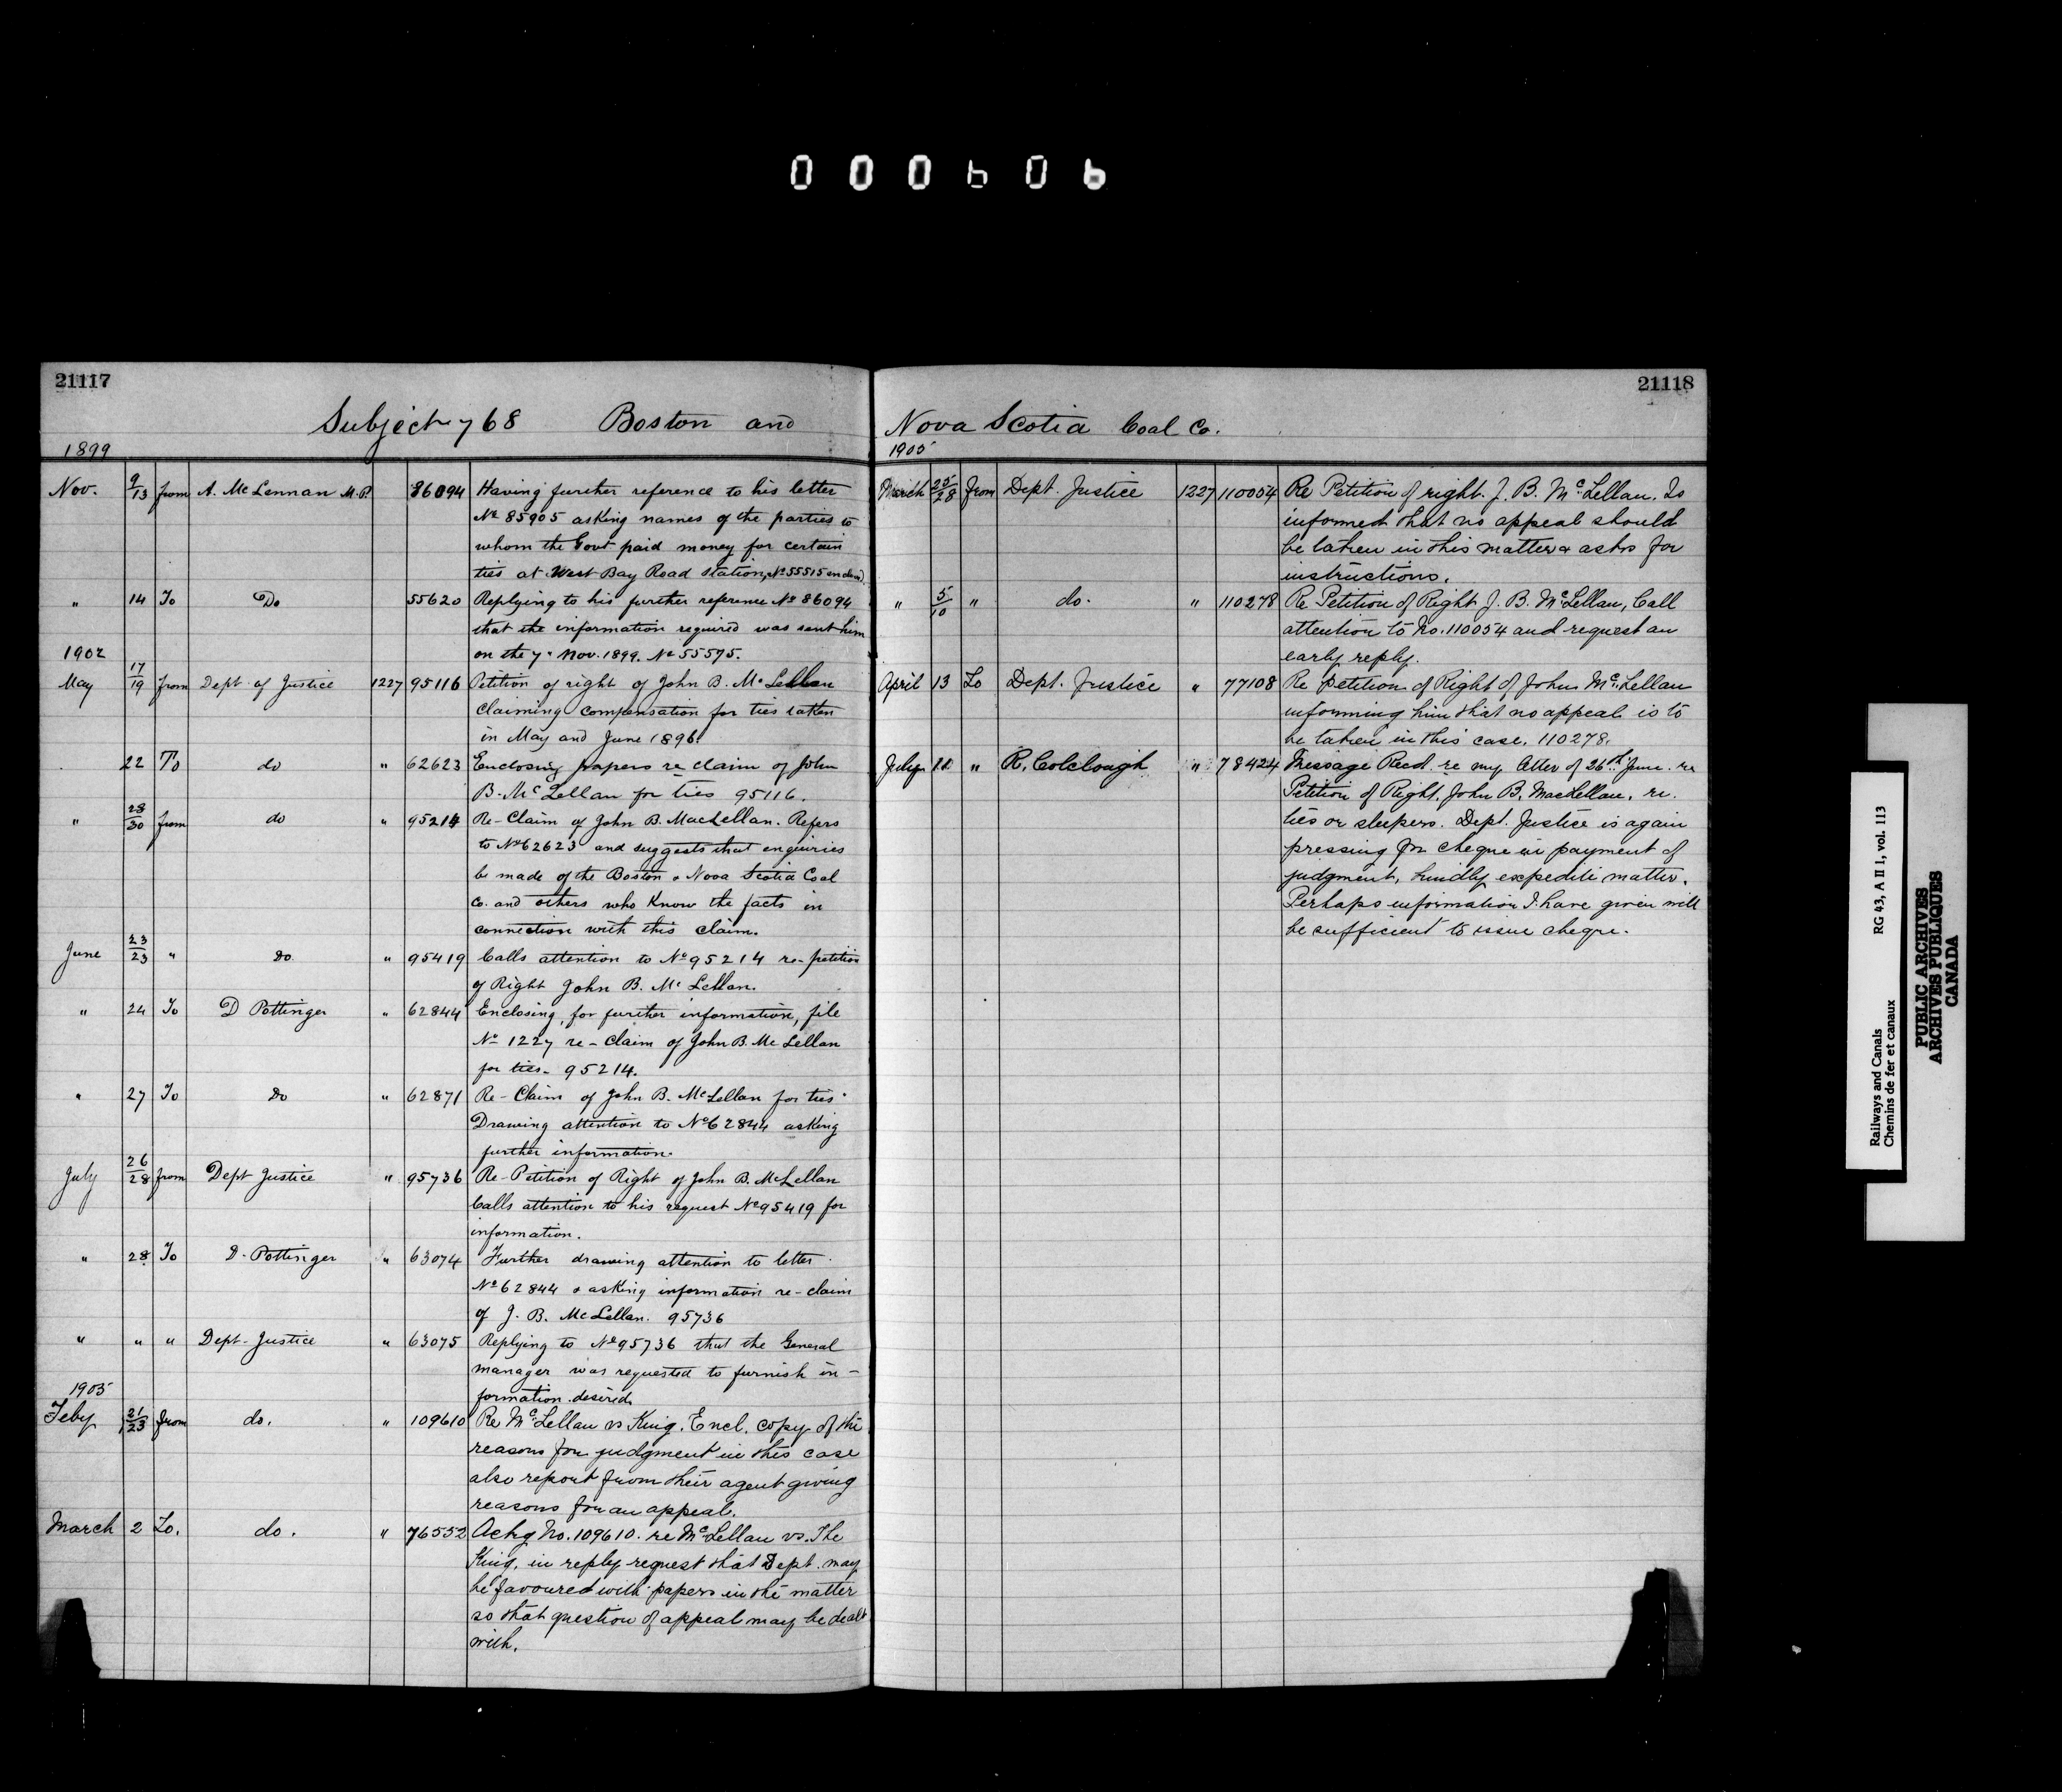 000606
21117
Subject 768 Boston and
1899
Nov. 9/13 from A. McLennan M.P. 86094 Having further reference to his letter
No 85905 asking names of the parties to
whom the Govt paid money for certain
ties at West Bay Road Station, No 55515 enclosed.
" 14 To Do 55620 Replying to his further reference No 86094
that the information required was sent him
on the 7. Nov. 1899. No 55595.
1902
May 17/19 from Dept of Justice 1227 95116 Petition of right of John B. McLellan
claiming compensation for ties taken
in May and June 1896.
22 To do " 62623 Enclosing papers re claim of John
B. McLellan for ties 95116.
" 28/30 from do " 95214 Re-Claim of John B. MacLellan. Refers
to No 62623 and suggests that enquiries
be made of the Boston & Nova Scotia Coal
Co. and others who know the facts in
connection with this claim.
June 23/23 " do " 95419 Calls attention to No 95214 re-petition
of Right John B. McLellan.
" 24 To D Pottinger " 62844 Enclosing, for further information, file
No 1227 re-claim of John B. McLellan
for ties - 95214.
" 27 To Do " 62871 Re-Claim of John B. McLellan for ties
Drawing attention to No 62844 asking
further information.
July 26/28 from Dept Justice " 95736 Re-Petition of Right of John B. McLellan
Calls attention to his request No 95419 for
information.
" 28 To D. Pottinger " 63074 Further drawing attention to letter
No 62844 & asking information re-claim
of J. B. McLellan. 95736
" " " Dept-Justice " 63075 Replying to No 95736 that the General
manager was requested to furnish in-
formation desired.
1905
Feby 21/23 from do. " 109610 Re McLellan vs King. Encl. copy of the
reasons for judgment in this case
also report from their agent giving
reasons for an appeal.
March 2 To. do. " 76552 Ackg No. 109610. re McLellan vs. The
King, in reply request that Dept. may
be favoured with papers in the matter
so that question of appeal may be dealt
with.
21118
Nova Scotia Coal Co.
1905
March 25/28 from Dept. Justice 1227 110054 Re Petition of right. J. B. McLellan. Is
informed that no appeal should
be taken in this matter & asks for
instructions.
" 5/10 " do. " 110278 Re Petition of Right J. B. McLellan, Call
attention to No. 110054 and request an
early reply.
April 13 To Dept. Justice " 77108 Re petition of Right of John McLellan
informing him that no appeal is to
be taken in this case. 110278.
July 11 " R. Colclough " 78424 Message Recd. re my letter of 26th June. re
Petition of Right. John B. MacLellan. re.
ties or sleepers. Dept. Justice is again
pressing for cheque in payment of
judgment, kindly expedite matter.
Perhaps information I have given will
be sufficient to issue cheque.
Railways and Canals RG 43, A II 1, vol. 113
Chemins de fer et canaux
PUBLIC ARCHIVES
ARCHIVES PUBLIQUES
CANADA